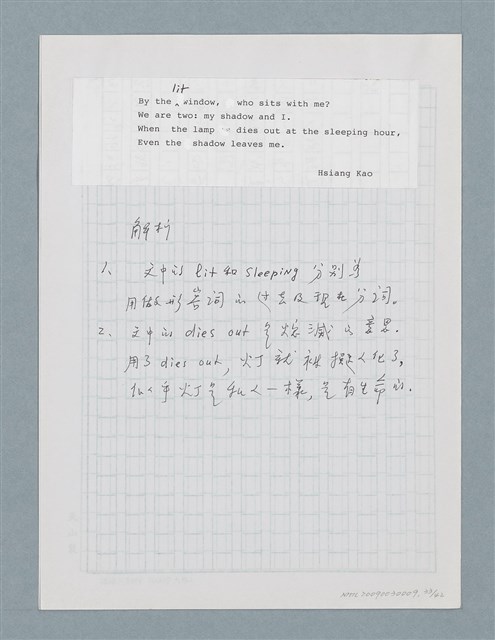 lit
By the ‸ window, who sits with me?
We are two: my shadow and I.
When the lamp dies out at the sleeping hour,
Even the shadow leaves me.
Hsiang Kao
解析
1、 文中的 lit 和 sleeping 分別為
用做形容詞的過去及現在分詞。
2、 文中的 dies out 是熄滅的意思.
用了 dies out, 灯就被擬人化了,
似乎灯是和人一樣, 是有生命的.